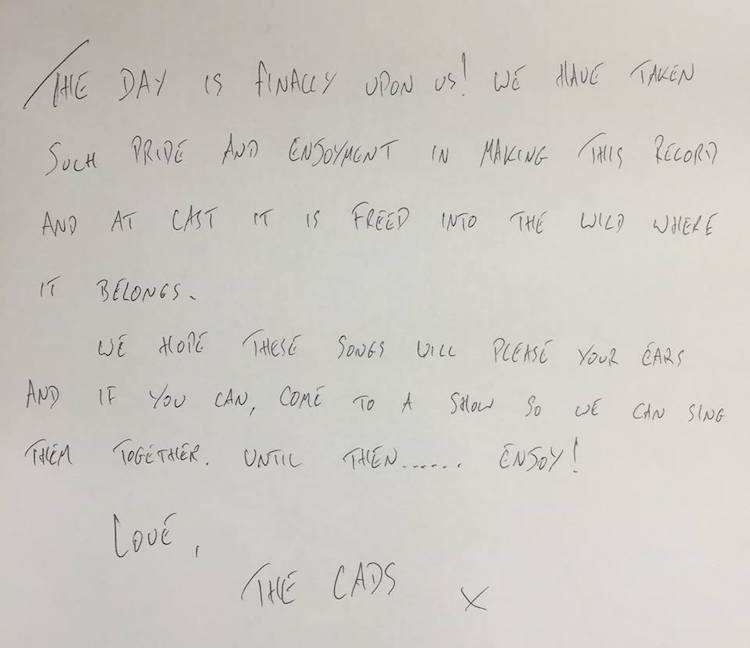 THE DAY IS FINALLY UPON US! WE HAVE TAKEN
SUCH PRIDE AND ENJOYMENT IN MAKING THIS RECORD
AND AT LAST IT IS FREED INTO THE WILD WHERE
IT BELONGS.
WE HOPE THESE SONGS WILL PLEASE YOUR EARS
AND IF YOU CAN, COME TO A SHOW SO WE CAN SING
THEM TOGETHER. UNTIL THEN...... ENJOY!
LOVE,
THE LADS X